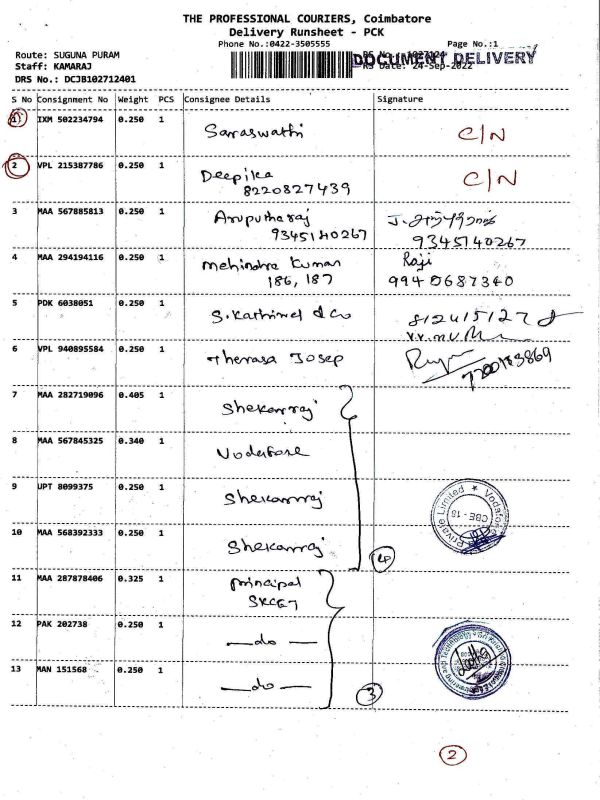 THE PROFESSIONAL COURIERS, Coimbatore
Delivery Runsheet - PCK
Phone No.:0422-3505555
Page No.:1
Route: SUGUNA PURAM
DOCUMENT DELIVERY
Staff: KAMARAJ
Date: 24-Sep-2022
DRS No.: DCJB102712401
S No Consignment No Weight PCS Consignee Details Signature
1 IXM 502234794 0.250 1 Saraswathi C/N
2 VPL 215387786 0.250 1 Deepika C/N
8220827439
3 MAA 567885813 0.250 1 Aruputharaj
9345140267 9345140267
4 MAA 294194116 0.250 1 Mehindra Kumar Raji
186, 187 9940687340
5 PDK 6038051 0.250 1 S. & co
6 VPL 940895584 0.250 1 Therasa Josep
7 MAA 282719096 0.405 1 Shekarraj
8 MAA 567845325 0.340 1 Vodafone
9 UPT 8099375 0.250 1 Shekarraj
Private Limited ★ Vodafone
CBE - 18
10 MAA 568392333 0.250 1 Shekarraj
11 MAA 287878406 0.325 1 Principal
SKCET
12 PAK 202738 0.250 1 — do —
13 MAN 151568 0.250 1 — do —
3
2